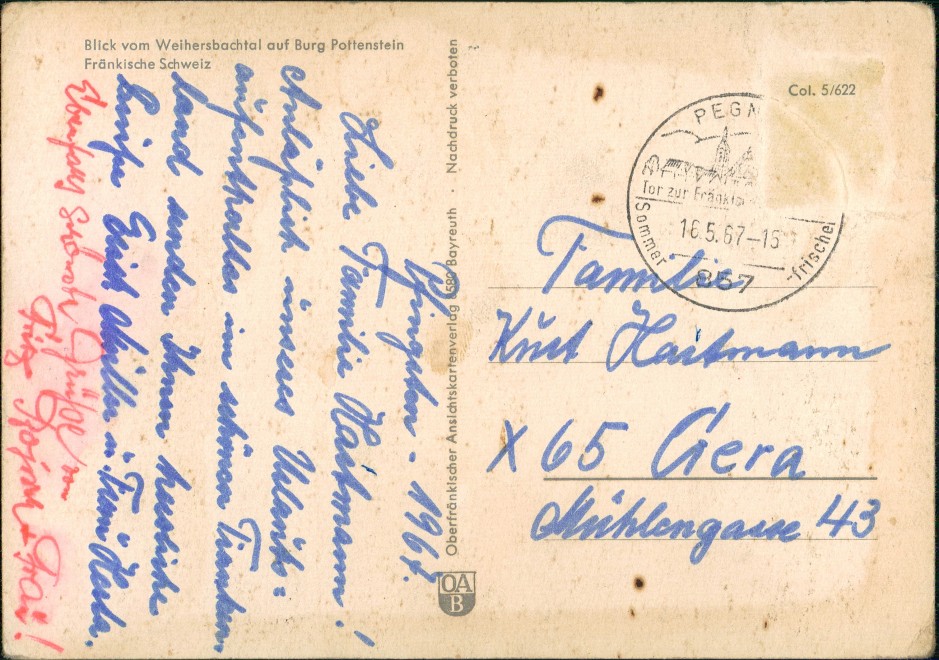 Blick vom Weihersbachtal auf Burg Pottenstein
Fränkische Schweiz
Pfingsten - 1967.
Liebe Familie Hartmann!
Anläßlich unseres Urlaubs-
aufenthaltes im schönen Franken
land senden Ihnen herzliche
Grüße Erich Müller u. Frau Herta.
Ebenfalls Grüße von
Fritz + Frau!
Oberfränkischer Ansichtskartenverlag 8580 Bayreuth · Nachdruck verboten
OA
B
Col. 5/622
PEGN
Tor zur Fränkis
Sommer -frische
16.5.67-15
857
Familie
Kurt Hartmann
X 65 Gera
Mühlengasse 43